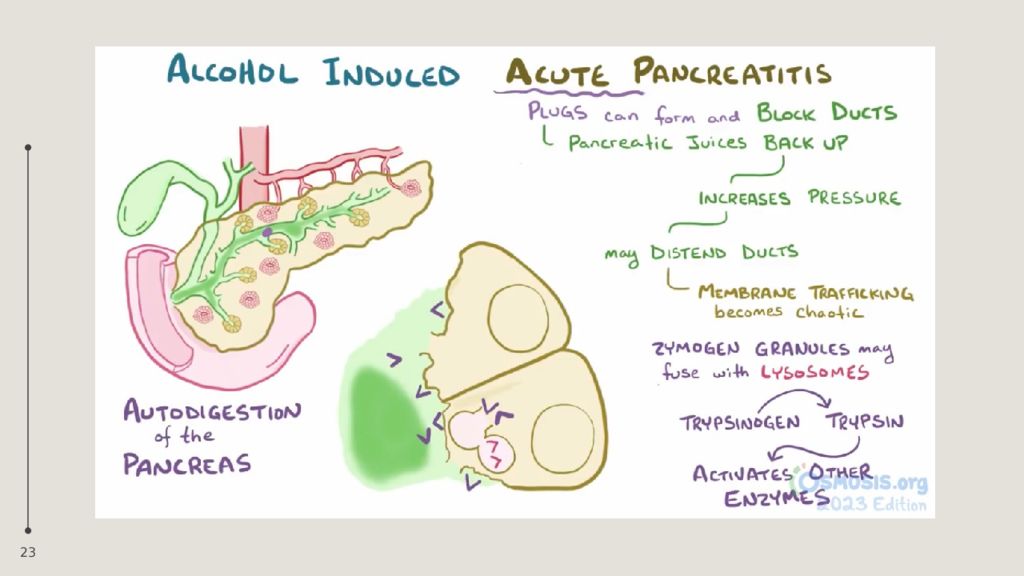 ALCOHOL INDUCED ACUTE PANCREATITIS
PLUGS can form and BLOCK DUCTS
Pancreatic Juices BACK UP
INCREASES PRESSURE
may DISTEND DUCTS
MEMBRANE TRAFFICKING
becomes chaotic
ZYMOGEN GRANULES may
fuse with LYSOSOMES
TRYPSINOGEN TRYPSIN
ACTIVATES OTHER
ENZYMES
AUTODIGESTION
of the
PANCREAS
OSMOSIS.org
2023 Edition
23